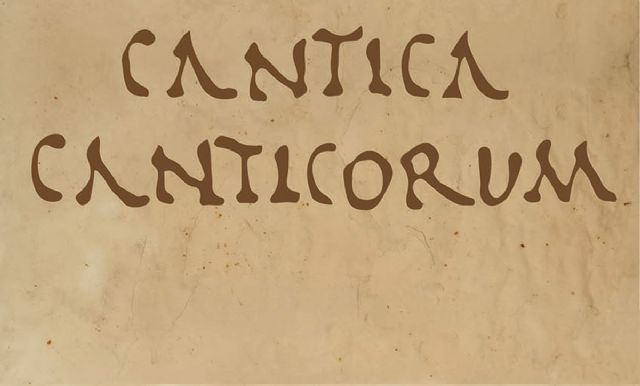 CANTICA
CANTICORUM